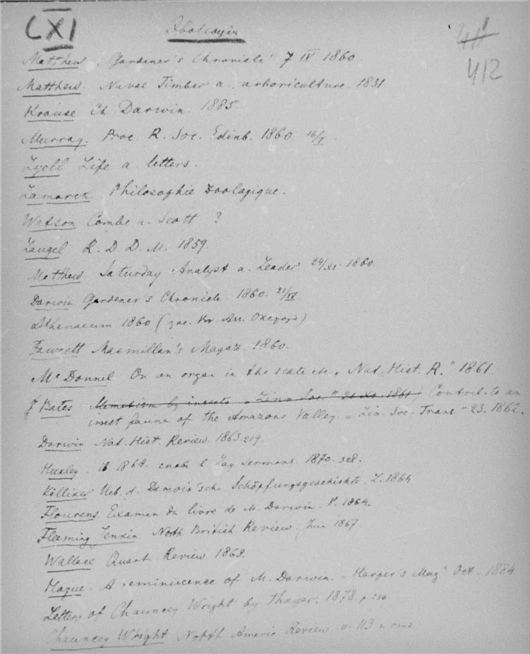 CXI
412
Matthew. Gardener's Chronicle 7 IV 1860.
Matthew. Naval Timber a. arboriculture. 1831.
Krause Ch. Darwin. 1885.
Murray. Proc. R. Soc. Edinb. 1860
Lyell Life a. letters.
Lamarck Philosophie Zoologique.
Watson Combe a. Scott ?
Laugel R. D. D. M. 1859.
Matthew Saturday Analyst a. Leader 24/XI. 1860.
Darwin Gardener's Chronicle. 1860. 21/IV
Athenaeum 1860
Fawcett Macmillan's Magaz. 1860.
Mc Donnel On an organ in the scate etc. „Nat. Hist. R." 1861.
Bates Contrib. to an
insect fauna of the Amazons Valley. „Lin. Soc. Trans" 23. 1862.
Darwin Nat. Hist. Review. 1863. 219.
Huxley 1864. Lay Sermons. 1870. 328.
Kölliker Ueb. d. Darwin'sche Schöpfungsgeschichte. L. 1864
Flourens. Examen du livre de M. Darwin. P. 1864.
Fleaming Jenkin North British Review. Jun 1867
Wallace Quart Review. 1869.
Hague. A reminiscence of M. Darwin. „Harper's Mag" Oct. 1884
Letters of Chauncey Wright by Thayer. 1878. p.
Chauncey Wright North Americ Review. v. 113